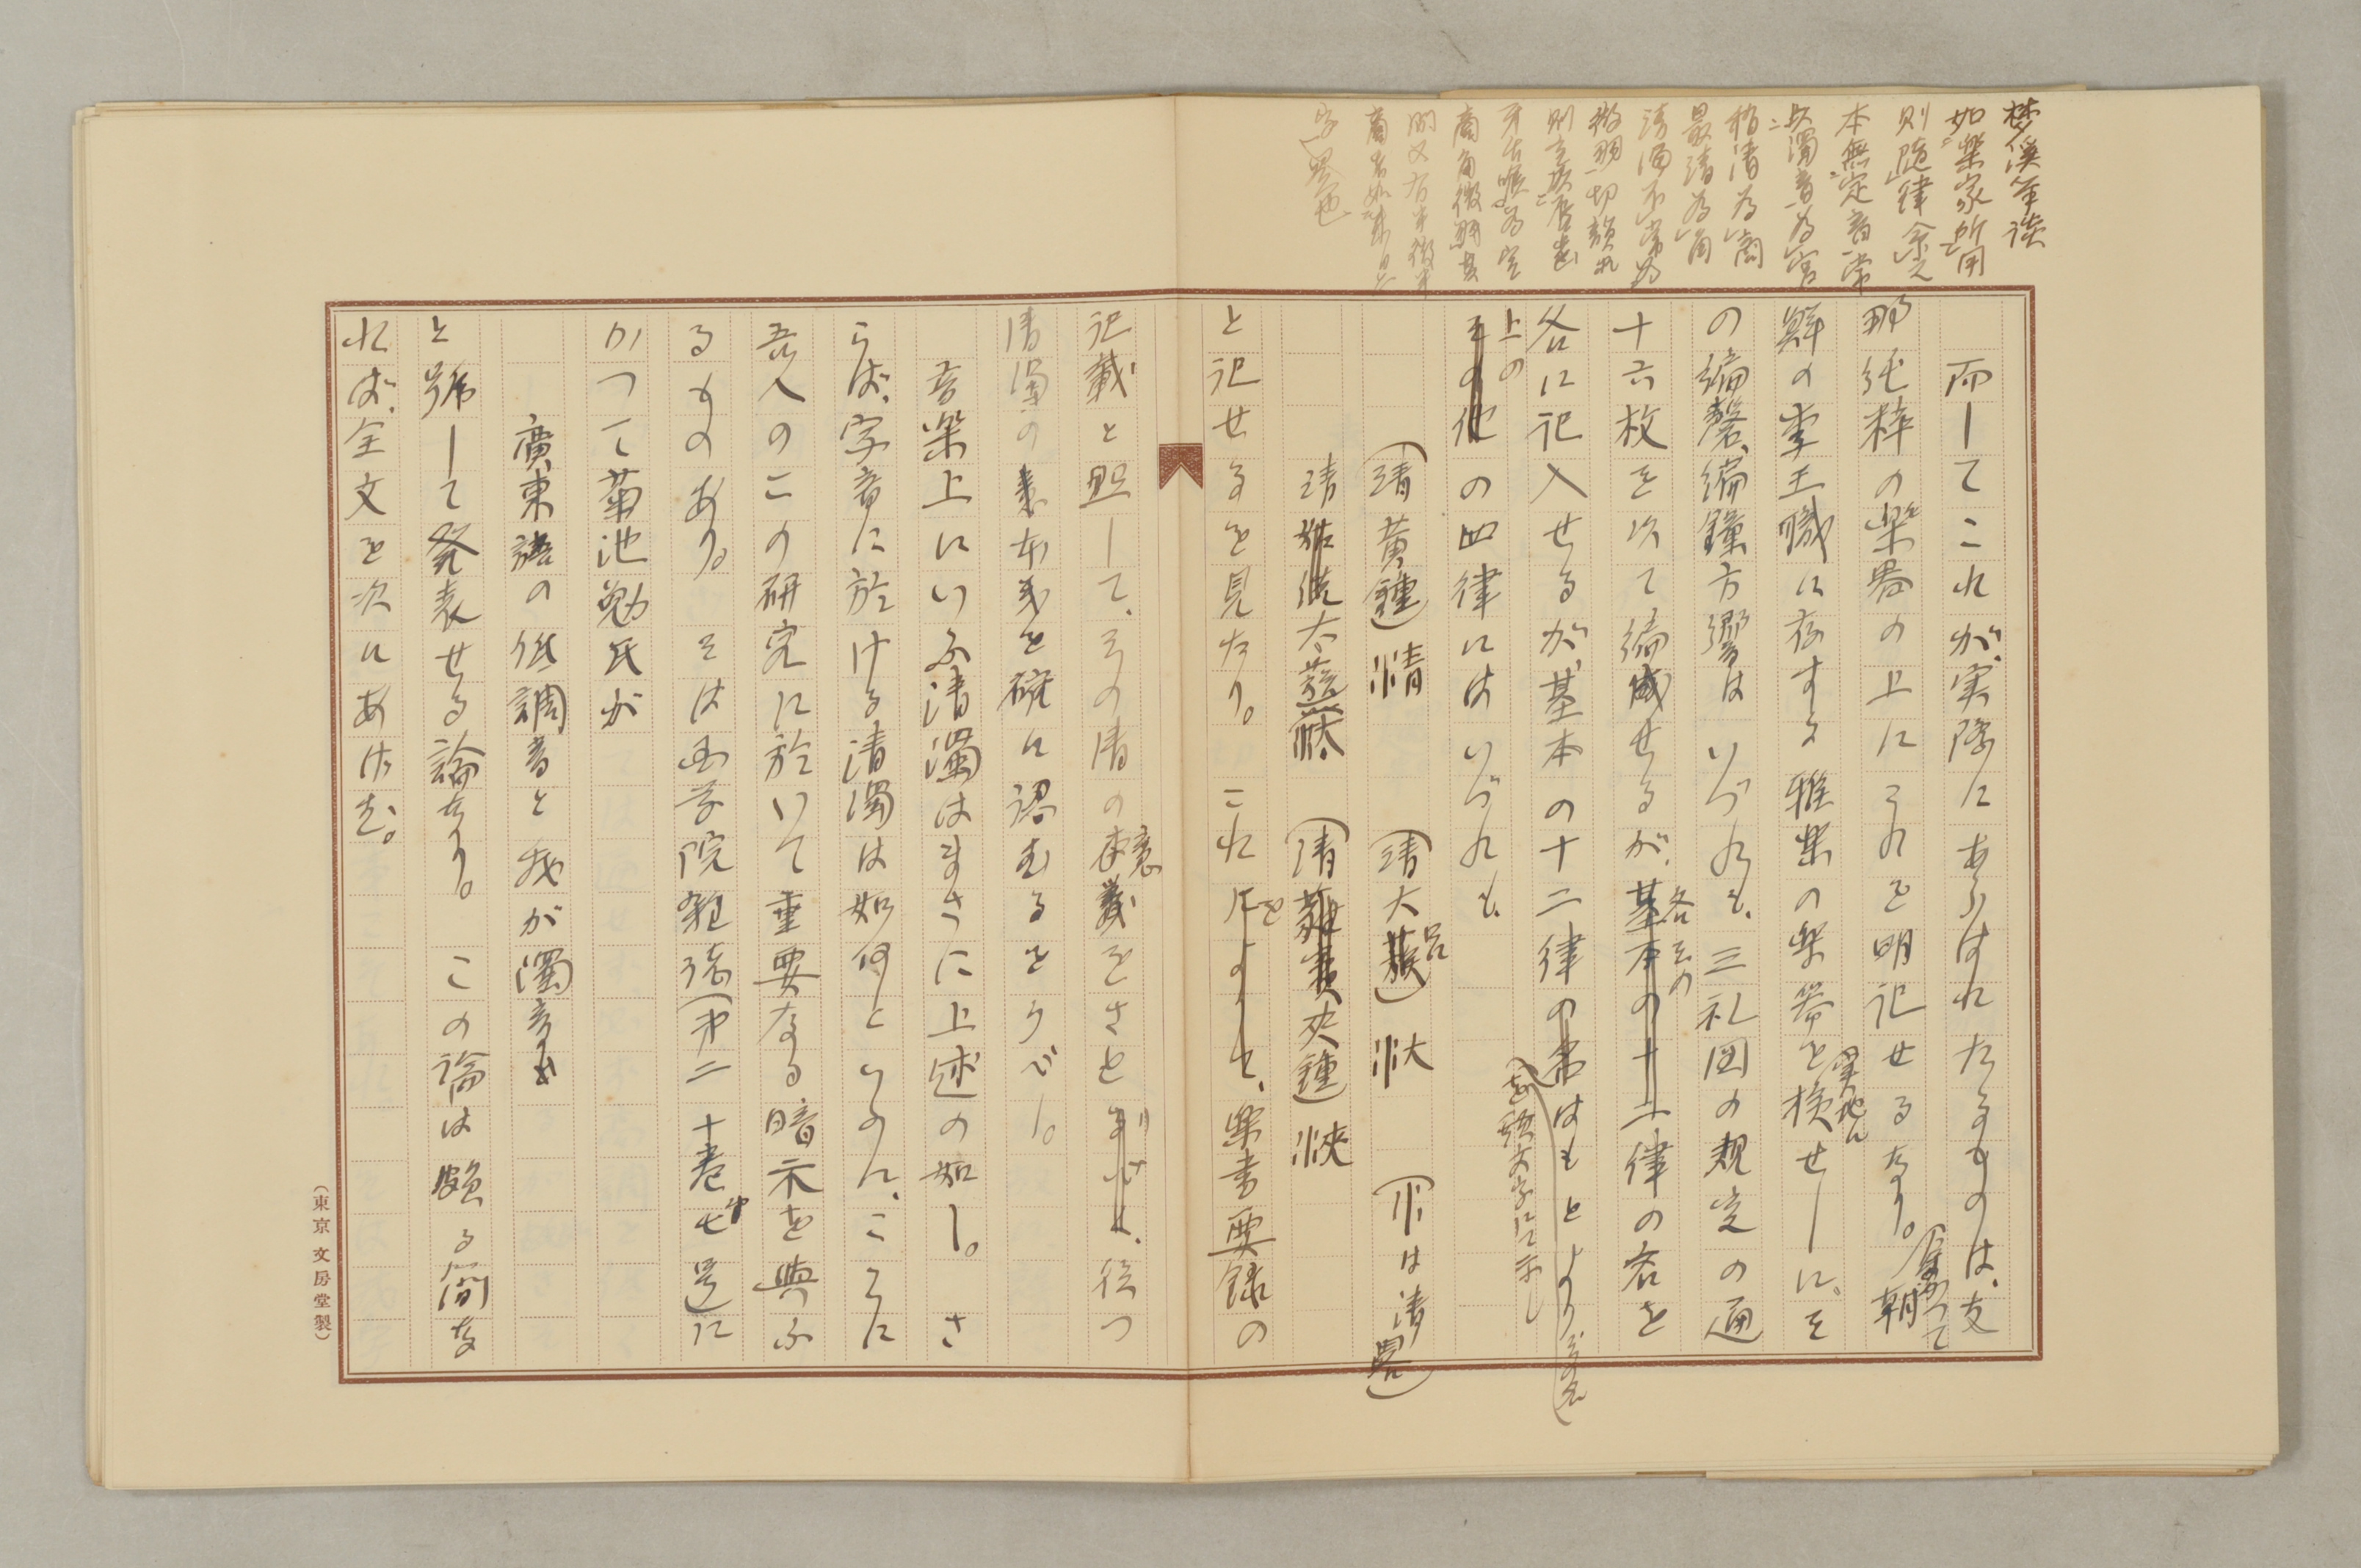 夢溪筆談
如楽家所用
則隨律命之
本無定音常
以濁者為宮
稍清為商
最清為角
清濁不常為
徵羽切韻家
則定以唇歯
牙舌喉為宮
商角徵羽其
間又有半徵半
商者如来日二
字是也
而してこれが、実際にあらはれたるものは、支
那純粋の楽器の上にこれを明記せるなり。余かつて朝
鮮の李王職に存する雅楽の楽器を実地に検せしに、そ
の編磬、編鐘、方響はいづれも、三礼図の規定の通
十六枚を以て編成せるが、各その十二律の名を
各に記入せるが基本の十二律の者はもとより
を頭文字にて示し
上の四律にはいづれも、
(清黄鐘)清 (清大呂)汏 (氵は清畧)
清太蔟 (清夾鐘)浹
と記せるを見たり。これを楽書要録の
記載と照して、その清の意義をさとり、従つ
清濁の意義を確に認むるをうべし。
音楽上にいふ清濁はまさに上述の如し。さ
らば、字音に於ける清濁は如何といふに、ここに
吾人のこの研究に於いて重要なる暗示を與ふ
るものあり。そは國学院雑誌(第二十巻七号)に
かつて菊池勉氏が
廣東語の低調音と我が濁音
と號して発表せる論なり。この論は頗る簡な
れば、全文を次にあげむ。
(東京 文房堂製)